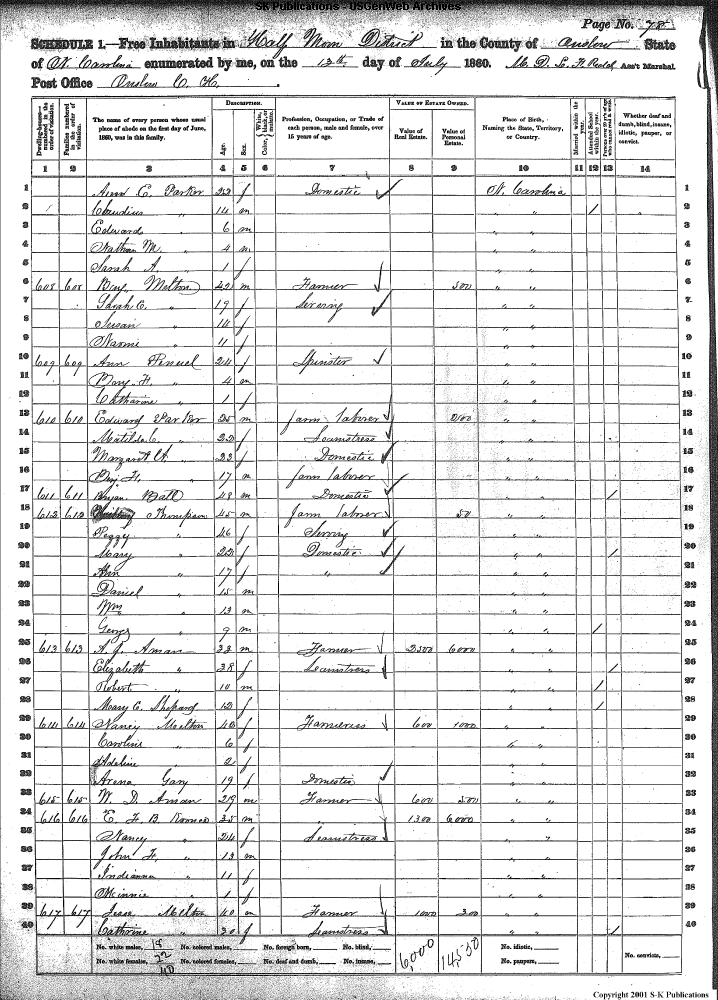 SK Publications - USGenWeb Archives
Page No. 78
SCHEDULE 1.—Free Inhabitants in Half Moon District in the County of Onslow State
of N. Carolina enumerated by me, on the 13th day of July 1860. Ass't Marshal.
Post Office Onslow C. H.
Dwelling-houses numbered in the order of visitation. Families numbered in the order of visitation. The name of every person whose usual place of abode on the first day of June, 1860, was in this family. DESCRIPTION. Age. Sex. Color, White, black, or mulatto. Profession, Occupation, or Trade of each person, male and female, over 15 years of age. VALUE OF ESTATE OWNED. Value of Real Estate. Value of Personal Estate. Place of Birth, Naming the State, Territory, or Country. Married within the year. Attended School within the year. Persons over 20 y'rs of age who cannot read & write. Whether deaf and dumb, blind, insane, idiotic, pauper, or convict.
1 2 3 4 5 6 7 8 9 10 11 12 13 14
1 Ann E. Parker 22 f Domestic ✓ N. Carolina 1
2 Claudius " 14 m " " / 2
3 Edward " 6 m " " 3
4 Nathan M. " 4 m " " 4
5 Sarah A. " 1 f " " 5
6 608 608 Benj. Melton 42 m Farmer ✓ 300 " " 6
7 Sarah C. " 19 f Serving ✓ " " 7
8 Susan " 14 f " " 8
9 Naomi " 11 f " " 9
10 609 609 Ann 24 f Spinster ✓ " " 10
11 F. " 4 m " " 11
12 Catharine " 1 f " " 12
13 610 610 Edward Parker 25 m farm laborer ✓ 200 " " 13
14 Matilda C. " 22 f Seamstress ✓ " " 14
15 Margaret A. " 23 f Domestic ✓ " " 15
16 Benj. F. " 17 m farm laborer " " 16
17 611 611 Bryan Ball 48 m Domestic ✓ " " / 17
18 612 612 Thompson 45 m farm laborer ✓ 50 " " 18
19 Peggy " 46 f Serving ✓ " " 19
20 Mary " 22 f Domestic ✓ " " / 20
21 Ann " 17 f " ✓ " " 21
22 Daniel " 15 m " " 22
23 Wm " 13 m " " 23
24 George " 9 m " " / 24
25 613 613 A. J. Aman 33 m Farmer ✓ 2500 6000 " " 25
26 Elizabeth " 38 f Seamstress ✓ " " / 26
27 Robert " 10 m " " / 27
28 Mary E. Shepard 12 f " " / 28
29 614 614 Nancy Melton 40 f Farmeress ✓ 600 1000 " 29
30 Caroline " 6 f " " 30
31 Adeline " 2 f " " 31
32 Arena Gary 19 f Domestic ✓ " " 32
33 615 615 W. D. Aman 29 m Farmer ✓ 600 500 " " 33
34 616 616 E. F. B. 35 m " 1300 6000 " " 34
35 Nancy " 24 f Seamstress ✓ " " 35
36 John F. " 13 m " " 36
37 Indianna " 11 f " " 37
38 " 1 f " " 38
39 617 617 Jesse Melton 40 m Farmer ✓ 1000 300 " " 39
40 Cathrine " 30 f Seamstress ✓ " " / 40
No. white males, 18 No. colored males, No. foreign born, No. blind, 6,000 14,550 No. idiotic, No. convicts,
No. white females, 22 No. colored females, No. deaf and dumb, No. insane, No. paupers,
40
Copyright 2001 S-K Publications